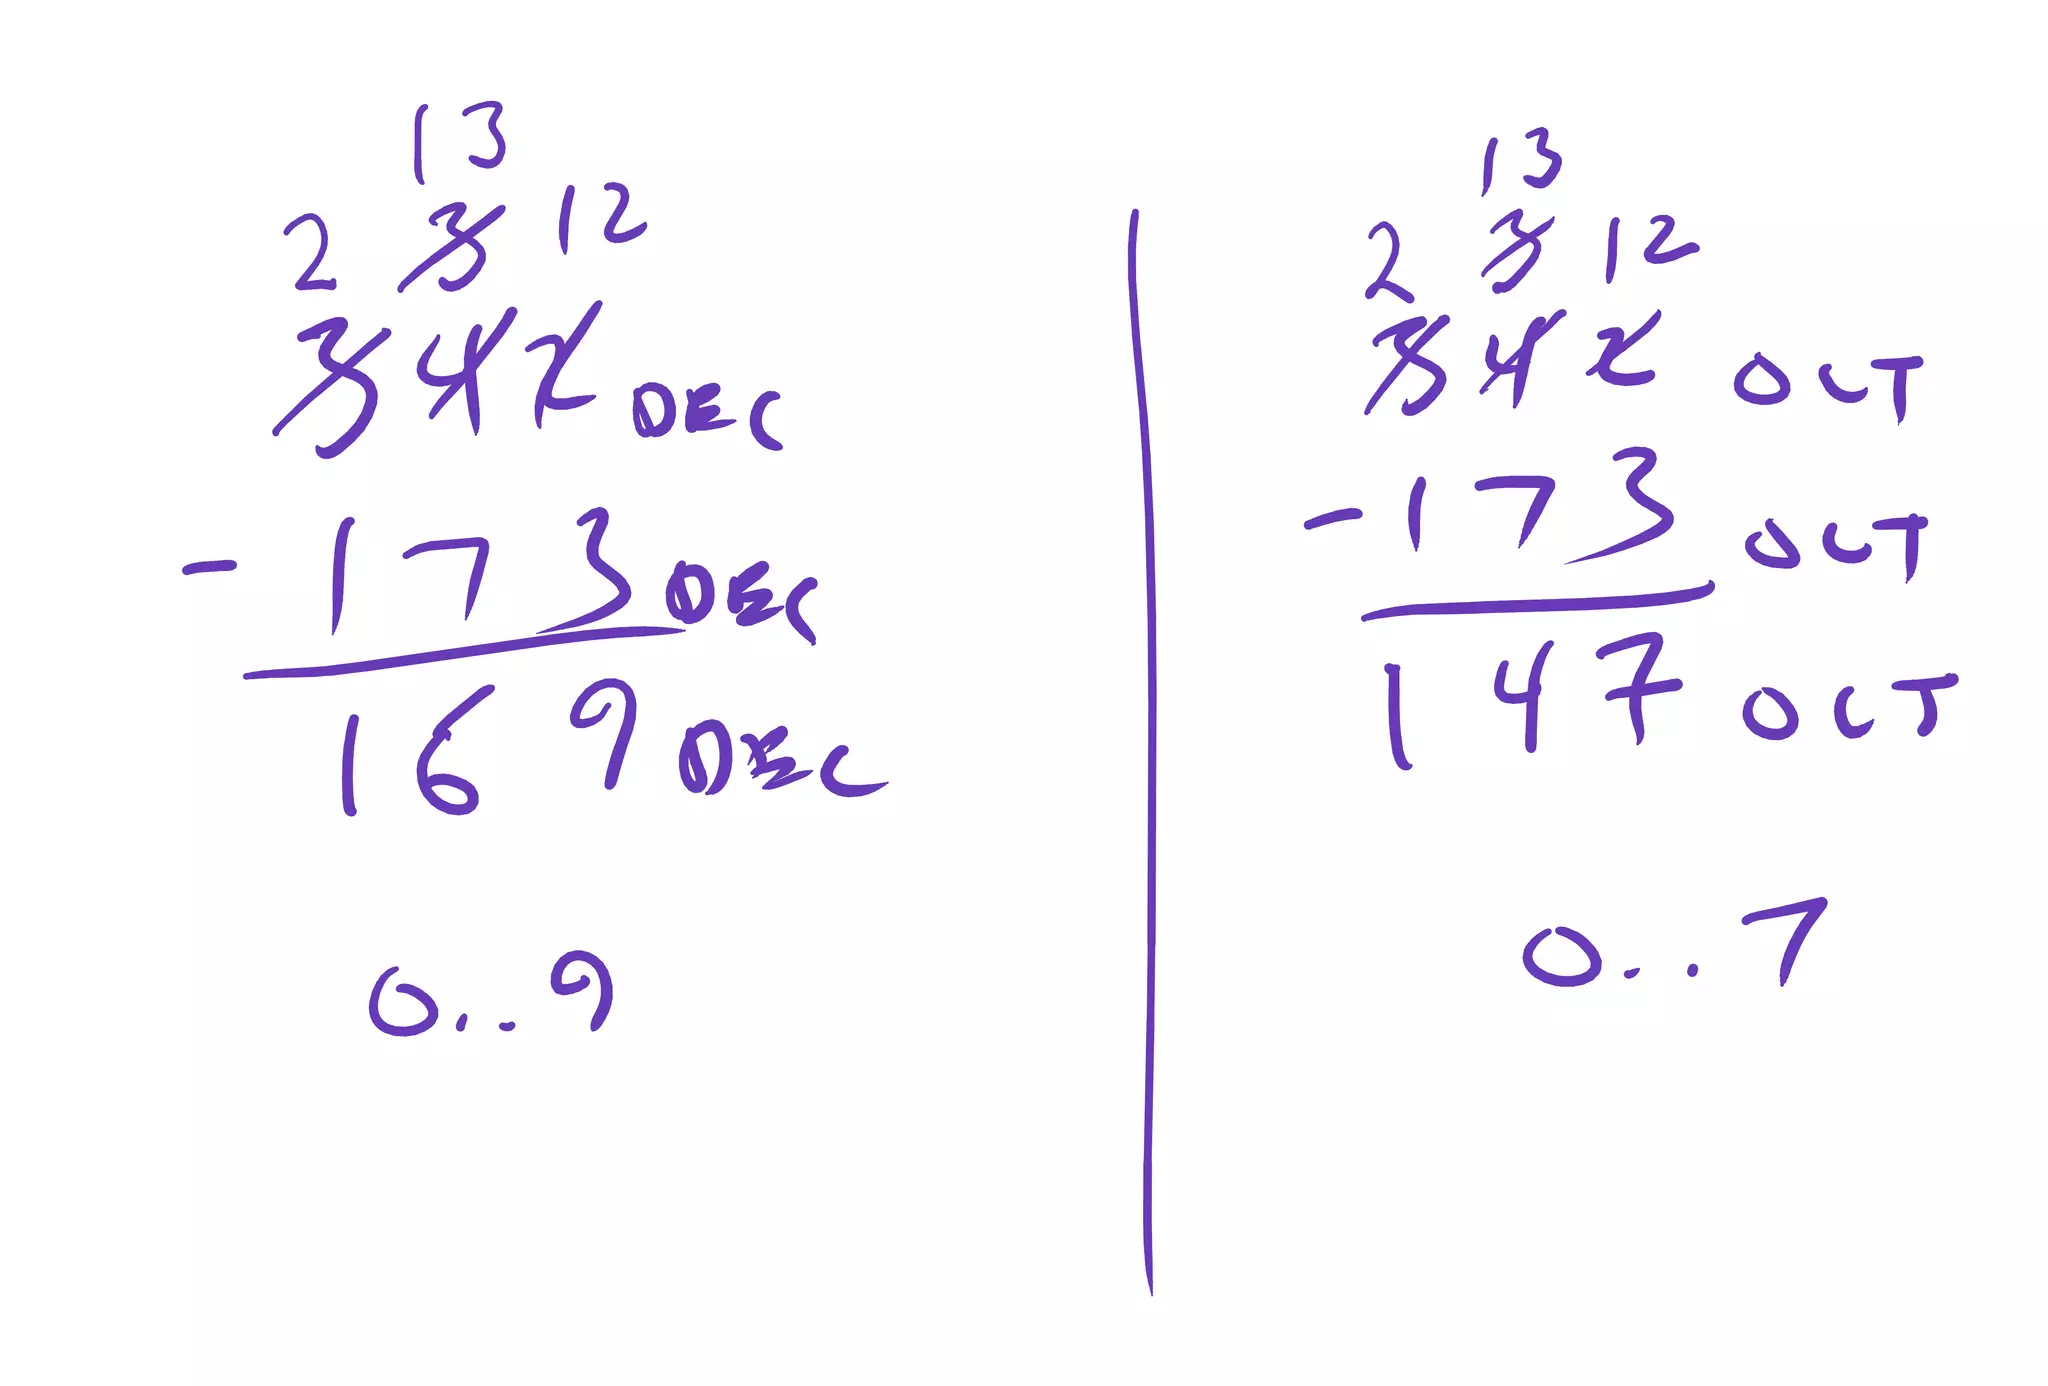 13
2 3 12
342 DEC
- 173 DEC
169 DEC
0..9
13
2 3 12
342 OCT
- 173 OCT
147 OCT
0..7